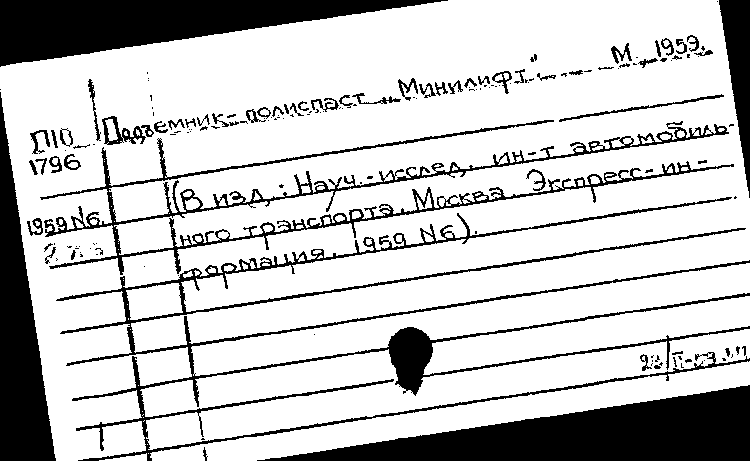 П10 Подъемник-полиспаст „Минилифт". М. 1959.
1796
(В изд.: Науч.-исслед. ин-т автомобиль-
1959 N6. ного транспорта. Москва. Экспресс-ин-
формация. 1959 N6).